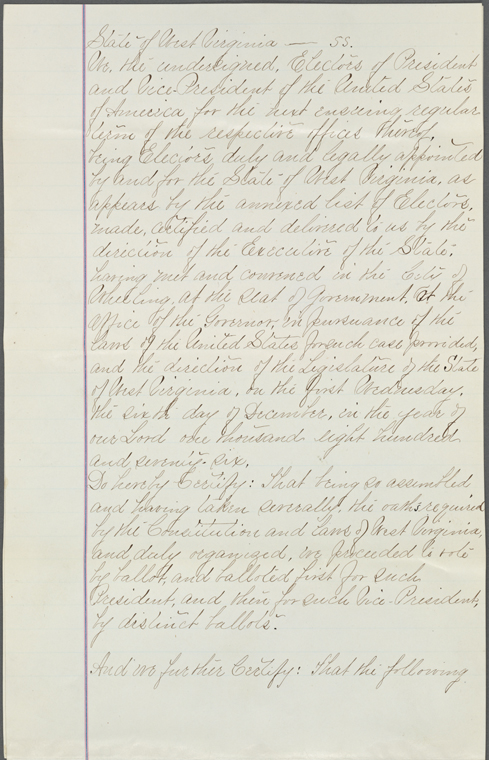 State of West Virginia — SS.
We, the undersigned, Electors of President
and Vice-President of the United States
of America for the next ensuing regular
term of the respective offices thereof,
being Electors duly and legally appointed
by and for the State of West Virginia, as
appears by the annexed list of Electors,
made, certified and delivered to us by the
direction of the Executive of the State,
having met and convened in the City of
Wheeling, at the seat of Government, at the
Office of the Governor, in pursuance of the
laws of the United States for such case provided,
and the direction of the Legislature of the State
of West Virginia, on the first Wednesday,
the sixth day of December, in the year of
our Lord one thousand eight hundred
and seventy-six,
Do hereby Certify: That being so assembled
and having taken severally the oaths required
by the Constitution and laws of West Virginia,
and duly organized, we proceeded to vote
by ballot, and balloted first for such
President, and then for such Vice-President,
by distinct ballots.
And we further Certify: That the following